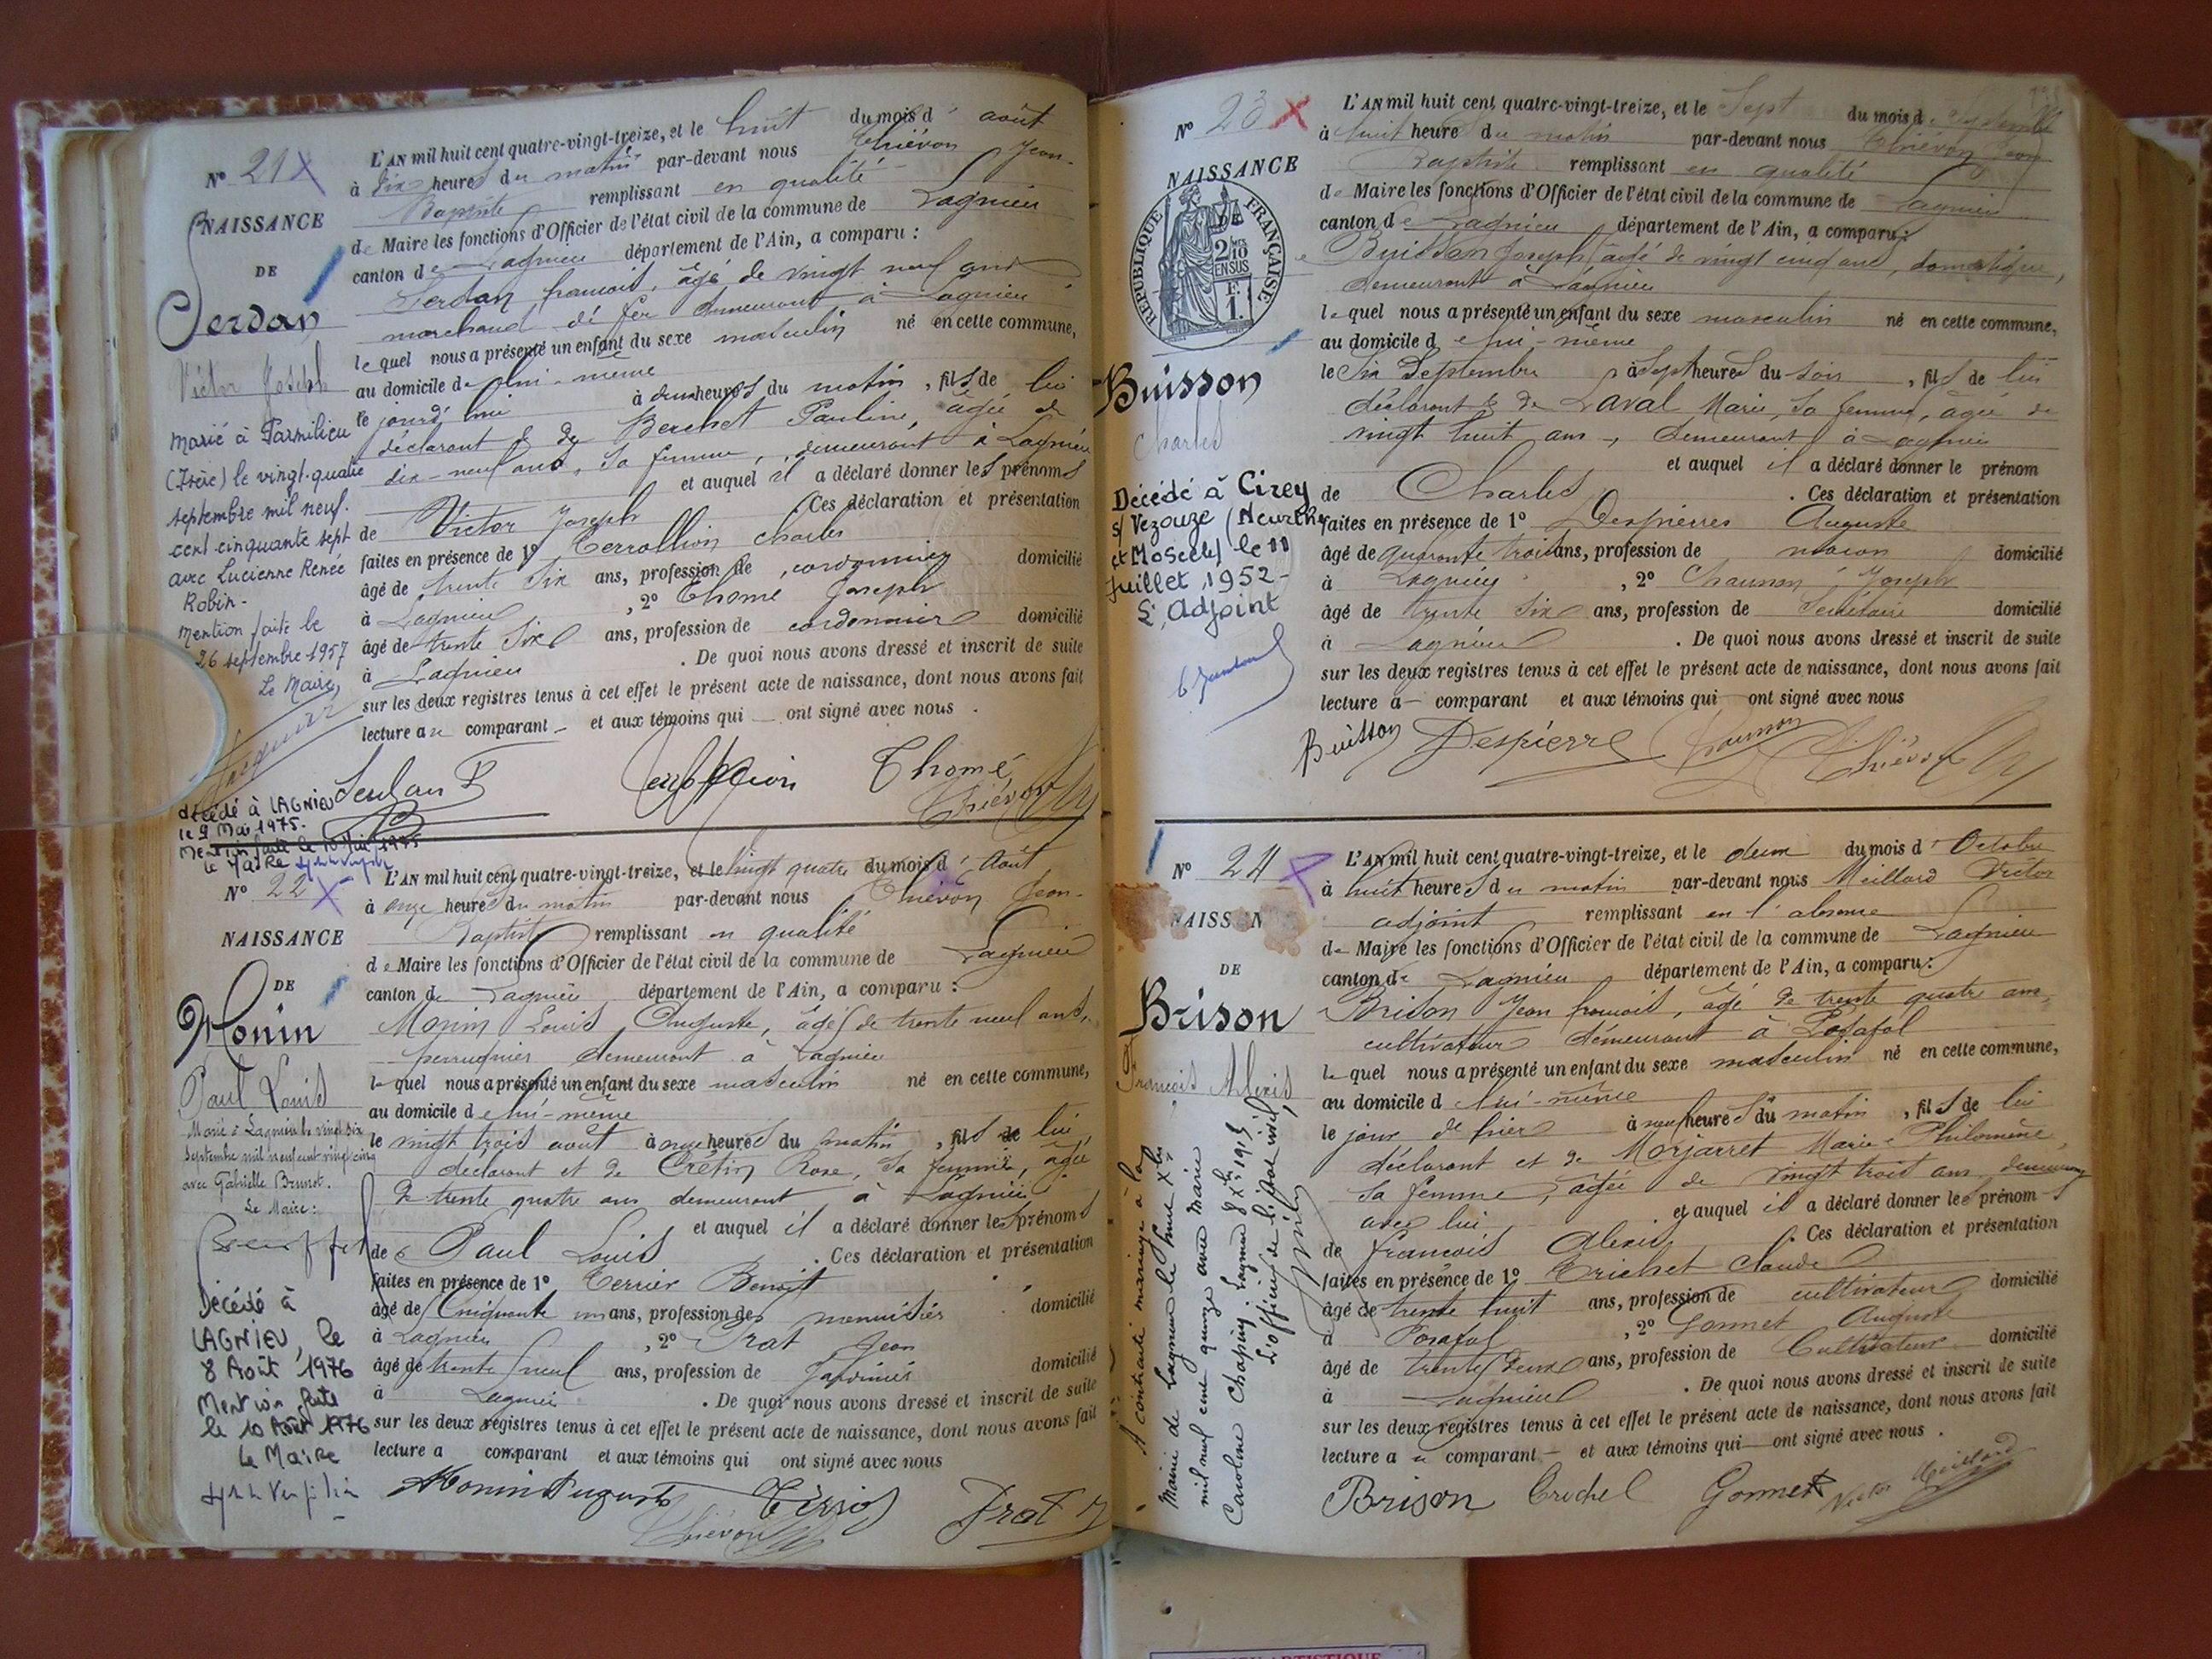 N° 21 X
NAISSANCE
DE
Serdan
Victor Joseph
Marié à Parmilieu
(Isère) le vingt-quatre
septembre mil neuf.
cent cinquante sept
avec Lucienne Renée
Robin-
Mention faite le
26 septembre 1957
Le Maire,
décédé à LAGNIEU
le 9 Mai 1975.
Mention faite le 10 Mai 1975
le Maire
L'AN mil huit cent quatre-vingt-treize, et le huit du mois d' août
à dix heures du matin par-devant nous Thiévon Jean-
Baptiste remplissant en qualité
de Maire les fonctions d'Officier de l'état civil de la commune de Lagnieu
canton de Lagnieu département de l'Ain, a comparu :
Serdan françois, âgé de vingt neuf ans
marchand de fer demeurant à Lagnieu
lequel nous a présenté un enfant du sexe masculin né en cette commune,
au domicile de lui-même
le jourd'hui à deux heures du matin, fils de lui
déclarant & de Berchet Pauline, âgée de
dix-neuf ans, sa femme, demeurant à Lagnieu
et auquel il a déclaré donner les prénoms
de Victor Joseph . Ces déclaration et présentation
faites en présence de 1° Terrollion charles
âgé de trente six ans, profession de cordonnier domicilié
à Lagnieu , 2° Thomé Joseph
âgé de trente six ans, profession de cordonnier domicilié
à Lagnieu . De quoi nous avons dressé et inscrit de suite
sur les deux registres tenus à cet effet le présent acte de naissance, dont nous avons fait
lecture au comparant et aux témoins qui ont signé avec nous .
Thomé
Thiévon
N° 22 X
NAISSANCE
DE
Monin
Paul Louis
Marié à Lagnieu le vingt six
septembre mil neuf cent vingt cinq
avec Gabrielle Brunet.
Le Maire :
Décédé à
LAGNIEU, le
8 Août 1976
Mention faite
le 10 Août 1976
le Maire
L'AN mil huit cent quatre-vingt-treize, et le vingt quatre du mois d' Août
à onze heures du matin par-devant nous Thiévon Jean-
Baptiste remplissant en qualité
de Maire les fonctions d'Officier de l'état civil de la commune de Lagnieu
canton de Lagnieu département de l'Ain, a comparu :
Monin Louis Auguste, âgé de trente neuf ans,
perruquier demeurant à Lagnieu
lequel nous a présenté un enfant du sexe masculin né en cette commune,
au domicile de lui-même
le vingt trois août à onze heures du matin, fils de lui
déclarant et de Crétin Rose, sa femme, âgée
de trente quatre ans demeurant à Lagnieu
et auquel il a déclaré donner les prénoms
de Paul Louis . Ces déclaration et présentation
faites en présence de 1° Terrier Benoît
âgé de Cinquante un ans, profession de menuisier domicilié
à Lagnieu , 2° Prat Jean
âgé de trente neuf ans, profession de Jardinier domicilié
à Lagnieu . De quoi nous avons dressé et inscrit de suite
sur les deux registres tenus à cet effet le présent acte de naissance, dont nous avons fait
lecture a comparant et aux témoins qui ont signé avec nous
Monin Auguste Prat
Thiévon
N° 23 X
NAISSANCE
DE
RÉPUBLIQUE FRANÇAISE
2/10
EN SUS
F.
1.
Buisson
Charles
Décédé à Cirey
s/ Vezouze (Meurthe
et Moselle) le 11
Juillet 1952-
L'Adjoint
L'AN mil huit cent quatre-vingt-treize, et le Sept du mois de Septembre
à huit heure du matin par-devant nous Thiévon Jean
Baptiste remplissant en qualité
de Maire les fonctions d'Officier de l'état civil de la commune de Lagnieu
canton de Lagnieu département de l'Ain, a comparu :
Buisson Joseph âgé de vingt cinq ans, domestique,
demeurant à Lagnieu
lequel nous a présenté un enfant du sexe masculin né en cette commune,
au domicile de lui-même
le Six Septembre à Sept heures du soir, fils de lui
déclarant & de Laval Marie, sa femme, âgée de
vingt huit ans, demeurant à Lagnieu
et auquel il a déclaré donner le prénom
de Charles . Ces déclaration et présentation
faites en présence de 1° Despierres Auguste
âgé de quarante trois ans, profession de maçon domicilié
à Lagnieu , 2° Chaunon Joseph
âgé de trente six ans, profession de Secrétaire domicilié
à Lagnieu . De quoi nous avons dressé et inscrit de suite
sur les deux registres tenus à cet effet le présent acte de naissance, dont nous avons fait
lecture à comparant et aux témoins qui ont signé avec nous
Buisson Despierre Thiévon
N° 24
NAISSAN
DE
Brison
François Alexis
A contracté mariage à la
Mairie de Lagnieu le huit Xbre
mil neuf cent quinze avec Marie
Caroline Chapuy. Lagnieu 8 Xbre 1915
L'officier de l'état civil,
L'AN mil huit cent quatre-vingt-treize, et le deux du mois d' Octobre
à huit heures du matin par-devant nous Meillard Victor
adjoint remplissant en l'absence
de Maire les fonctions d'Officier de l'état civil de la commune de Lagnieu
canton de Lagnieu département de l'Ain, a comparu :
Brison Jean françois, âgé de trente quatre ans,
cultivateur demeurant à Posafol
lequel nous a présenté un enfant du sexe masculin né en cette commune,
au domicile de lui-même
le jour d'hier à neuf heures du matin, fils de lui
déclarant et de Morjarret Marie-Philomène,
sa femme, âgée de vingt trois ans, demeurant
avec lui et auquel il a déclaré donner les prénoms
de françois Alexis . Ces déclaration et présentation
faites en présence de 1° Trichet Claude
âgé de trente huit ans, profession de cultivateur domicilié
à Posafol , 2° Gonnet Auguste
âgé de trente deux ans, profession de Cultivateur domicilié
à Lagnieu . De quoi nous avons dressé et inscrit de suite
sur les deux registres tenus à cet effet le présent acte de naissance, dont nous avons fait
lecture au comparant et aux témoins qui ont signé avec nous .
Brison Gonnet Victor Meillard